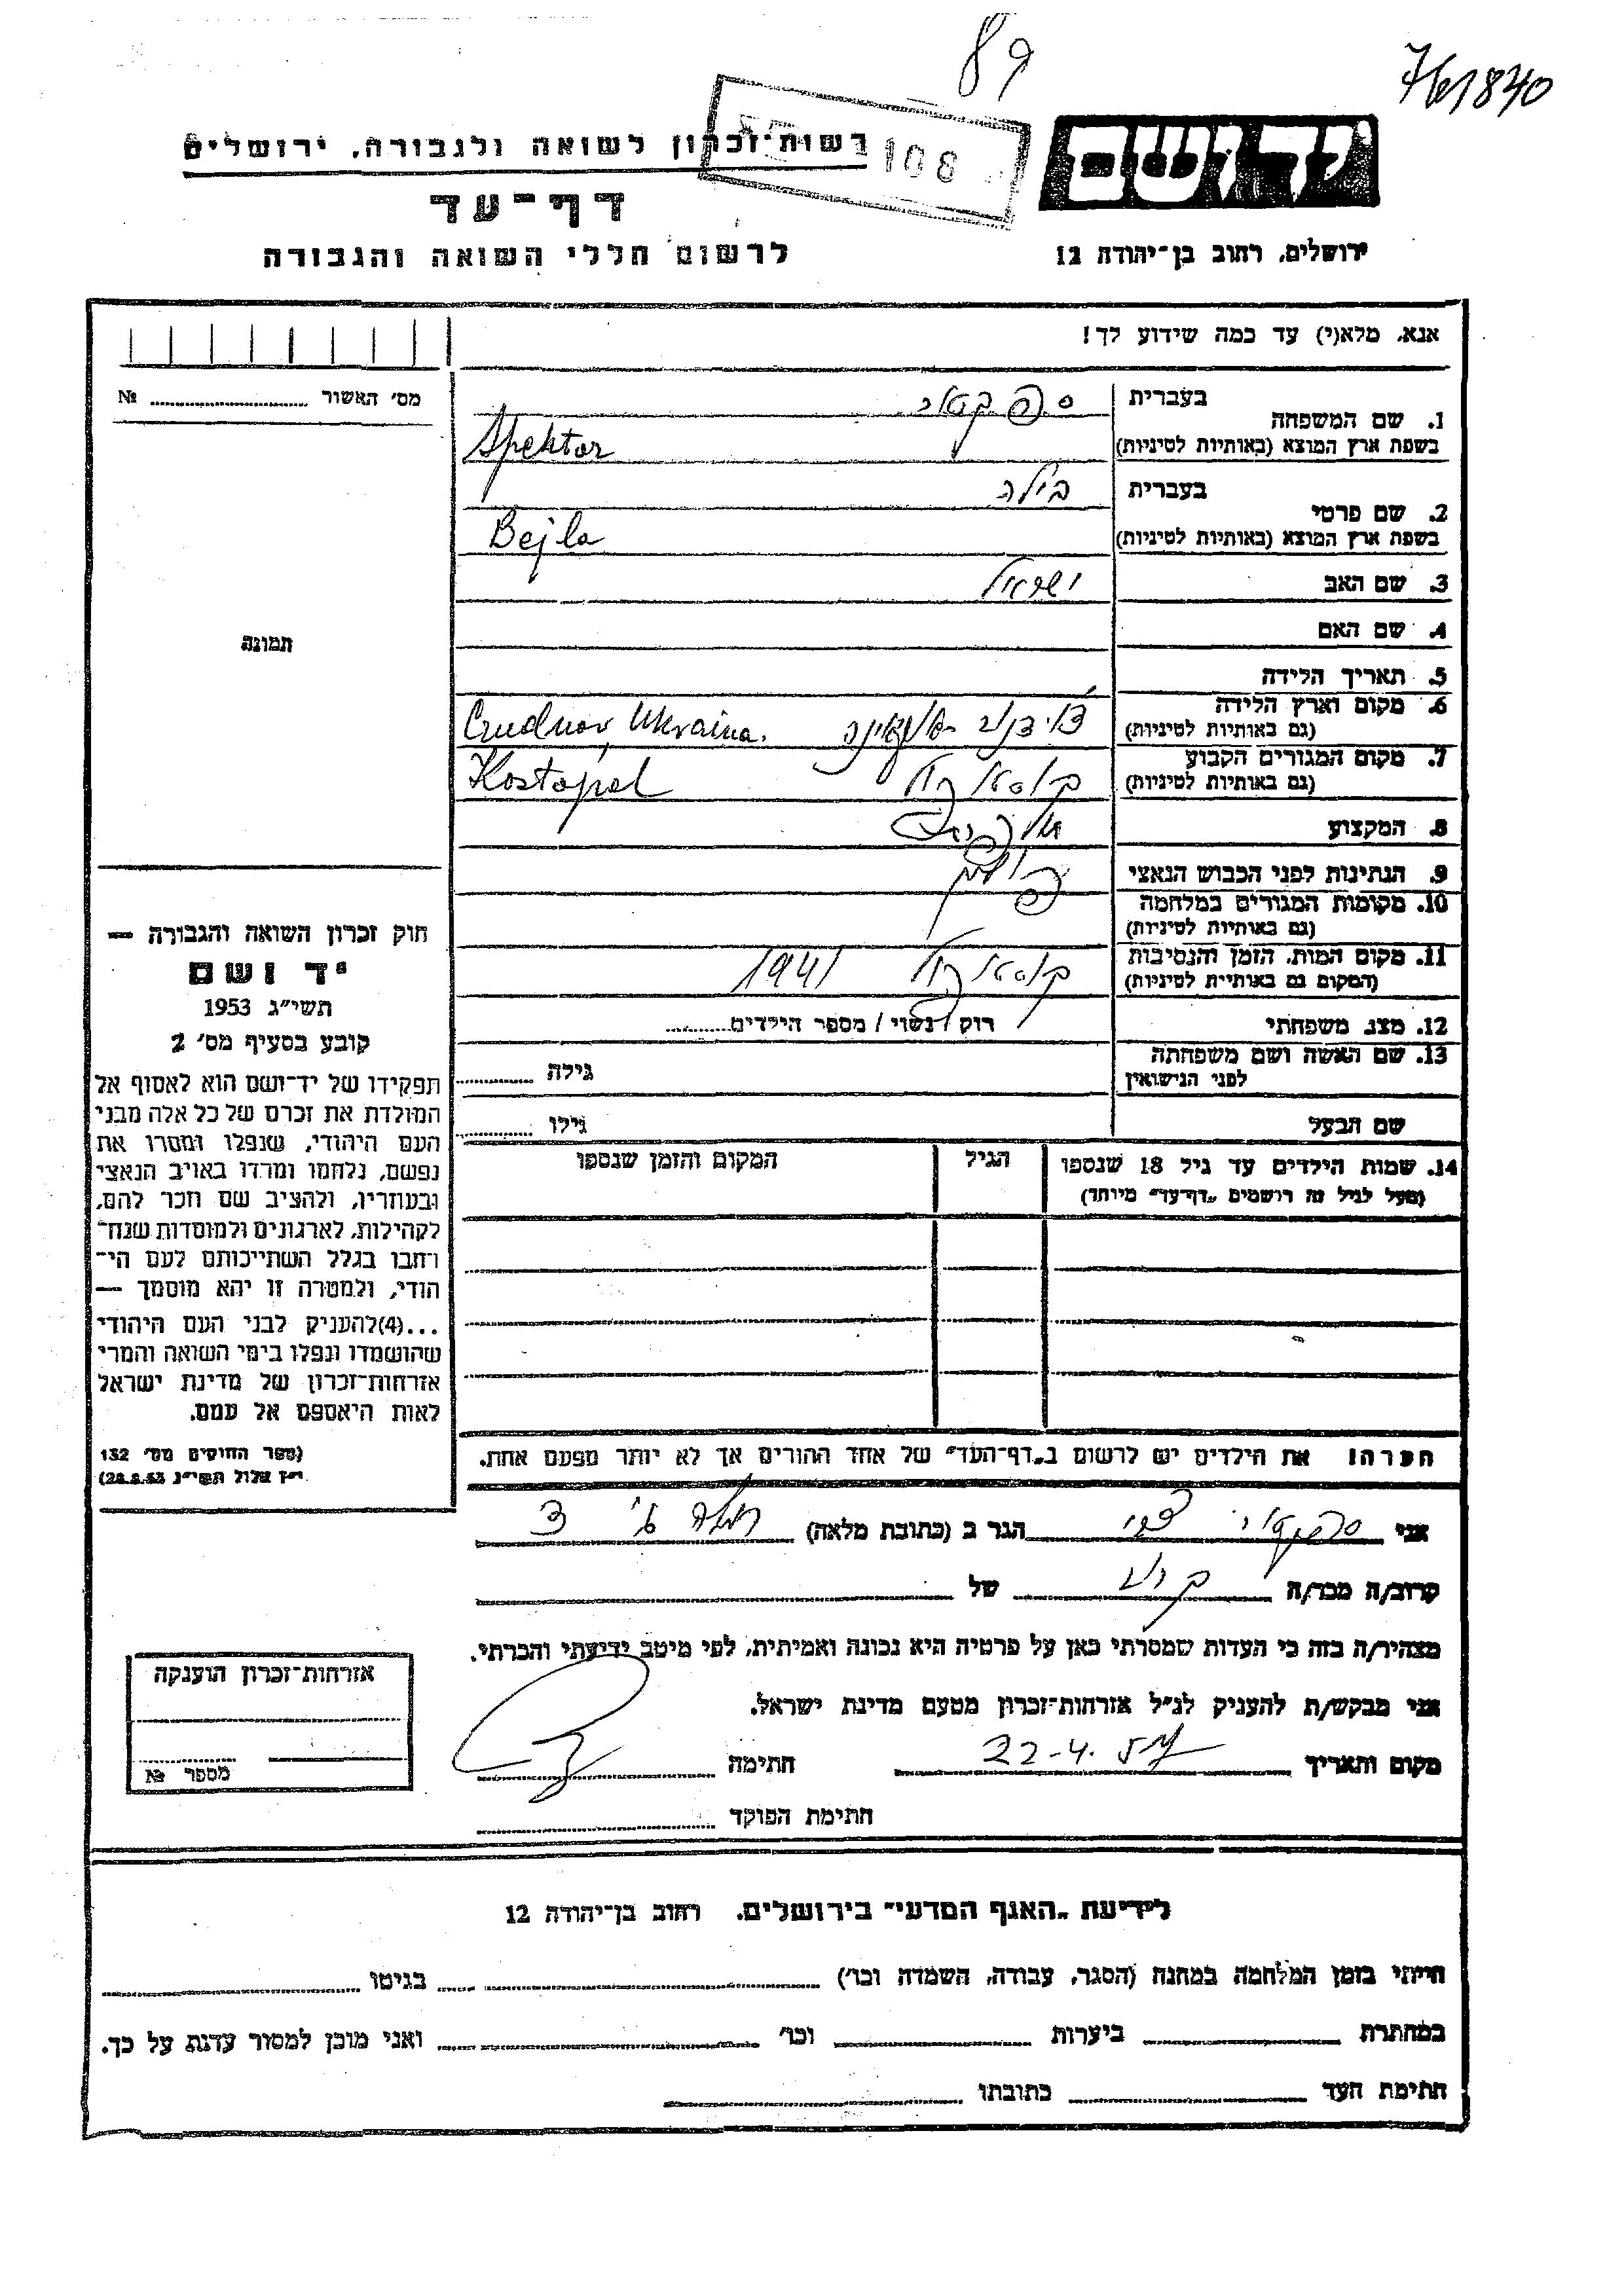 89
761840
רשות־זכרון לשואה ולגבורה, ירושלים
108
יד ושם
דף־עד
לרשום חללי השואה והגבורה
ירושלים, רחוב בן־יהודה 12
אנא, מלא(י) עד כמה שידוע לך!
מס' האשור № 
1. שם המשפחה
בעברית ספקטור
בשפת ארץ המוצא (באותיות לטיניות) Spektor
2. שם פרטי
בעברית בילה
בשפת ארץ המוצא (באותיות לטיניות) Bejla
3. שם האב ישראל
4. שם האם
תמונה
5. תאריך הלידה
6. מקום וארץ הלידה
(גם באותיות לטיניות) Czudnov Ukraina.
7. מקום המגורים הקבוע
(גם באותיות לטיניות) קוסטופול Kostopol
8. המקצוע
9. הנתינות לפני הכבוש הנאצי פולין
10. מקומות המגורים במלחמה
(גם באותיות לטיניות)
11. מקום המות, הזמן והנסיבות
(המקום גם באותיות לטיניות) קוסטופול 1941
12. מצב משפחתי רוק / נשוי / מספר הילדים
13. שם האשה ושם משפחתה
לפני הנישואין גילה
שם הבעל גילו
14. שמות הילדים עד גיל 18 שנספו
(מעל לגיל זה רושמים „דף־עד" מיוחד)
הגיל
המקום והזמן שנספו
חוק זכרון השואה והגבורה —
יד ושם
תשי״ג 1953
קובע בסעיף מס' 2
תפקידו של יד־ושם הוא לאסוף אל
המולדת את זכרם של כל אלה מבני
העם היהודי, שנפלו ומסרו את
נפשם, נלחמו ומרדו באויב הנאצי
ובעוזריו, ולהציב שם וזכר להם,
לקהילות, לארגונים ולמוסדות שנח־
רחבו בגלל השתייכותם לעם הי־
הודי, ולמטרה זו יהא מוסמך —
...(4)להעניק לבני העם היהודי
שהושמדו ונפלו בימי השואה והמרי
אזרחות־זכרון של מדינת ישראל
לאות היאספם אל עמם.
(ספר החוקים מס' 132
י״ז אלול תשי״ג 28.8.53)
הערה! את הילדים יש לרשום ב„דף־העד" של אחד ההורים אך לא יותר מפעם אחת.
אני ספקטור צבי הגר ב (כתובת מלאה)
קרוב/ה מכר/ה קרוב של
מצהיר/ה בזה כי העדות שמסרתי כאן על פרטיה היא נכונה ואמיתית, לפי מיטב ידיעתי והכרתי.
אני מבקש/ת להעניק לנ״ל אזרחות־זכרון מטעם מדינת ישראל.
מקום ותאריך 22-4. חתימה
חתימת הפוקד
אזרחות־זכרון הוענקה
מספר №
לידיעת „האגף המדעי" בירושלים, רחוב בן־יהודה 12
הייתי בזמן המלחמה במחנה (הסגר, עבודה, השמדה וכו') בגיטו
במחתרת ביערות וכו' ואני מוכן למסור עדות על כך.
חתימת העד כתובתו